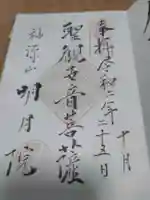 奉拝 令和二年
十月
二十五日
聖観世音菩薩
福源山
明月院